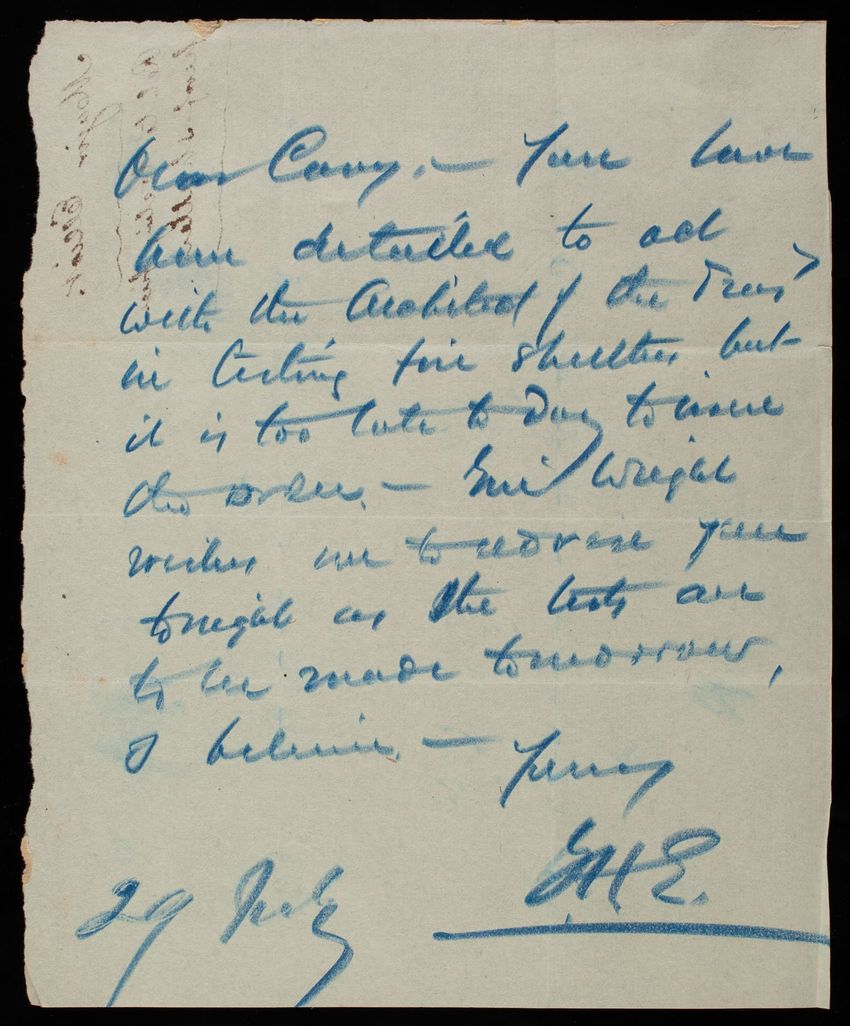 Dear Casey, – You have
been detailed to act
with the Architect of the Treasy
in testing fire shutters but
it is too late to day to issue
the order. – Genl Wright
wishes me to advise you
tonight as the tests are
to be made tomorrow,
I believe. – Yours
G.H.E.
29 July